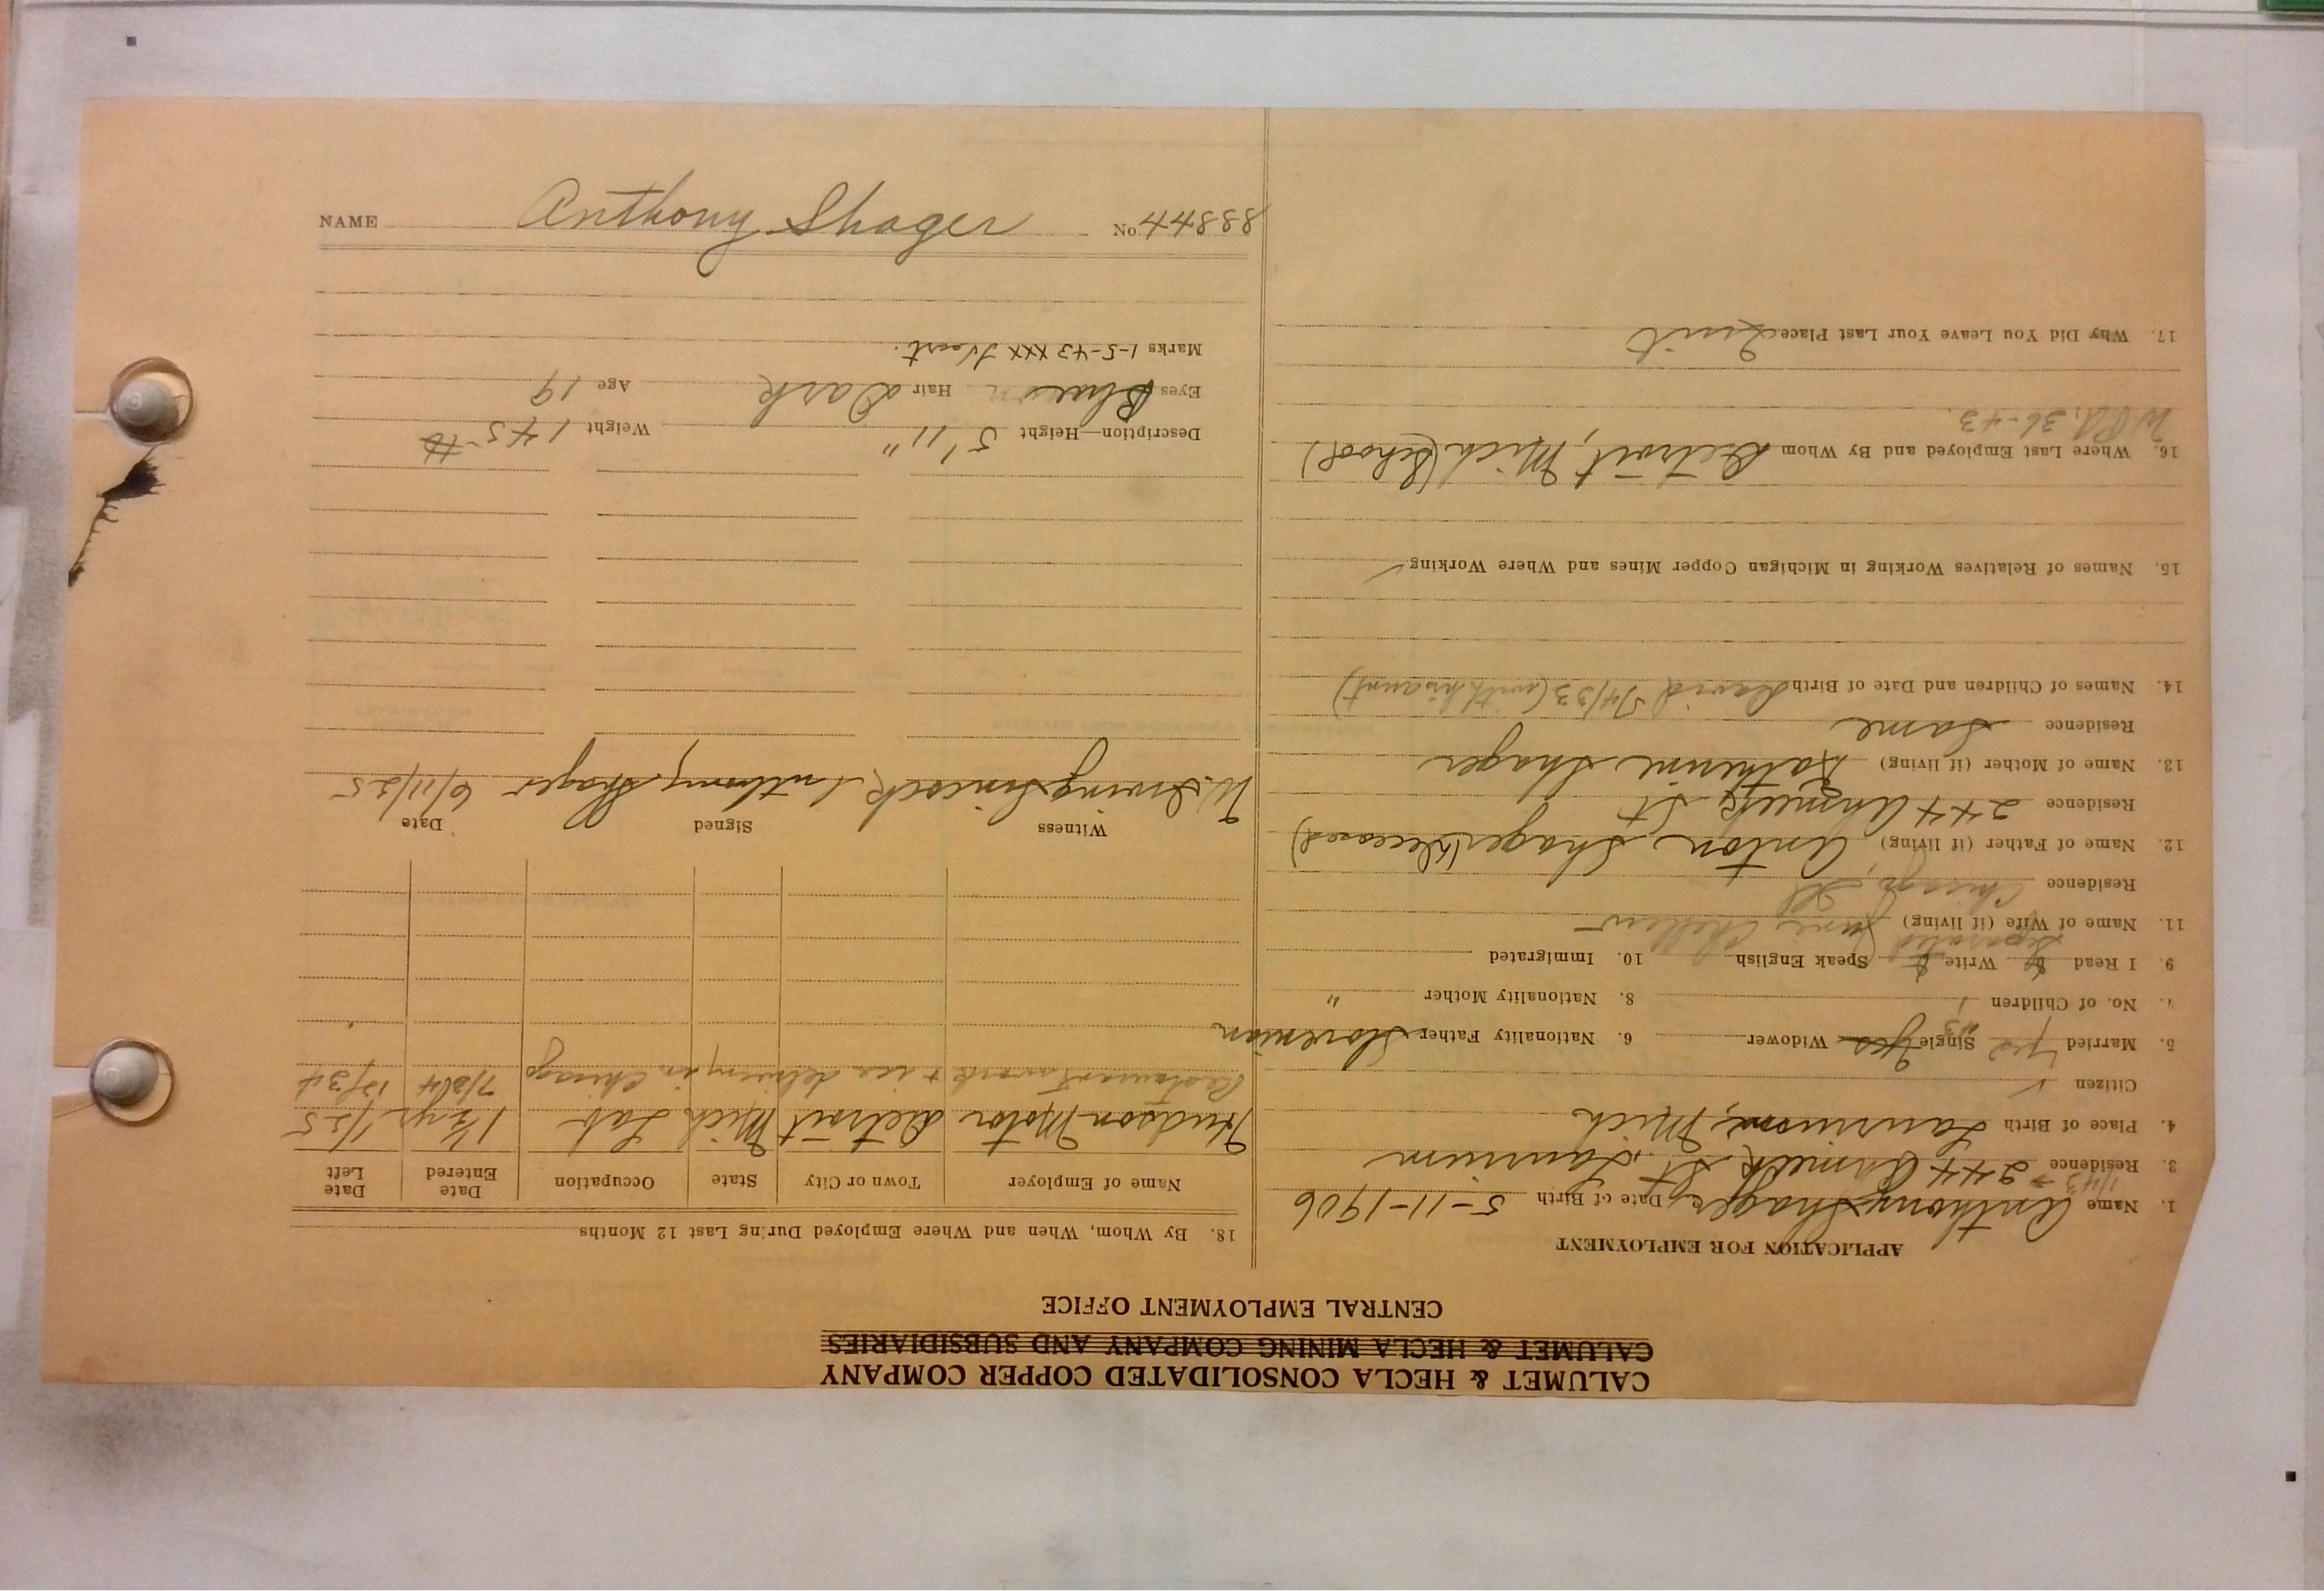 CALUMET & HECLA CONSOLIDATED COPPER COMPANY
CALUMET & HECLA MINING COMPANY AND SUBSIDIARIES
CENTRAL EMPLOYMENT OFFICE
APPLICATION FOR EMPLOYMENT
1. Name Anthony Shager Date of Birth 5-11-1906
1/43
3. Residence 244 Ahmeek St. Laurium
4. Place of Birth Laurium, Mich
Citizen ✓
5. Married Yes Single Yes Widower 6. Nationality Father Slovenian
7. No. of Children 1 8. Nationality Mother "
9. I Read Write Speak English 10. Immigrated
Separated
11. Name of Wife (if living) June
Residence Chicago, Ill
12. Name of Father (if living) Anton Shager (Deceased)
Residence 244 Ahmeek St
13. Name of Mother (if living) Katherine Shager
Residence Same
14. Names of Children and Date of Birth David 5/4/33 (with his aunt)
15. Names of Relatives Working in Michigan Copper Mines and Where Working ✓
16. Where Last Employed and By Whom Detroit, Mich (School)
W.P.A. 36-43.
17. Why Did You Leave Your Last Place Quit
18. By Whom, When and Where Employed During Last 12 Months
Name of Employer Town or City State Occupation Date Entered Date Left
Hudson Motor Detroit Mich Lab 1½ yr 1/25
Restaurant work + ice delivery in Chicago
Witness Signed Date
W. Irving Anthony Shager 6/11/25
Description—Height 5'11" Weight 145
Eyes Hair Dark Age 19
Marks 1-5-43 xxx Heart.
NAME Anthony Shager No. 44888